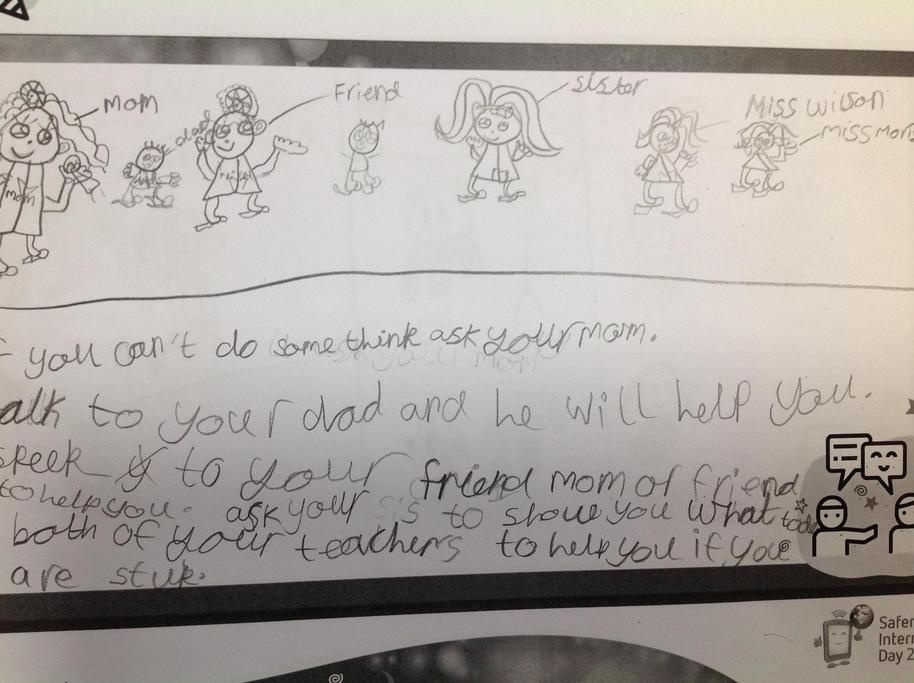 mom
dad
Friend
sister
Miss wilson
miss mom
mom
you can't do some think ask your mom.
alk to your dad and he will help you.
speek to your friend mom or friend
to help you. ask your sis to show you what todo
both of your teachers to help you if you
are stuk.
Safer
Intern
Day 2